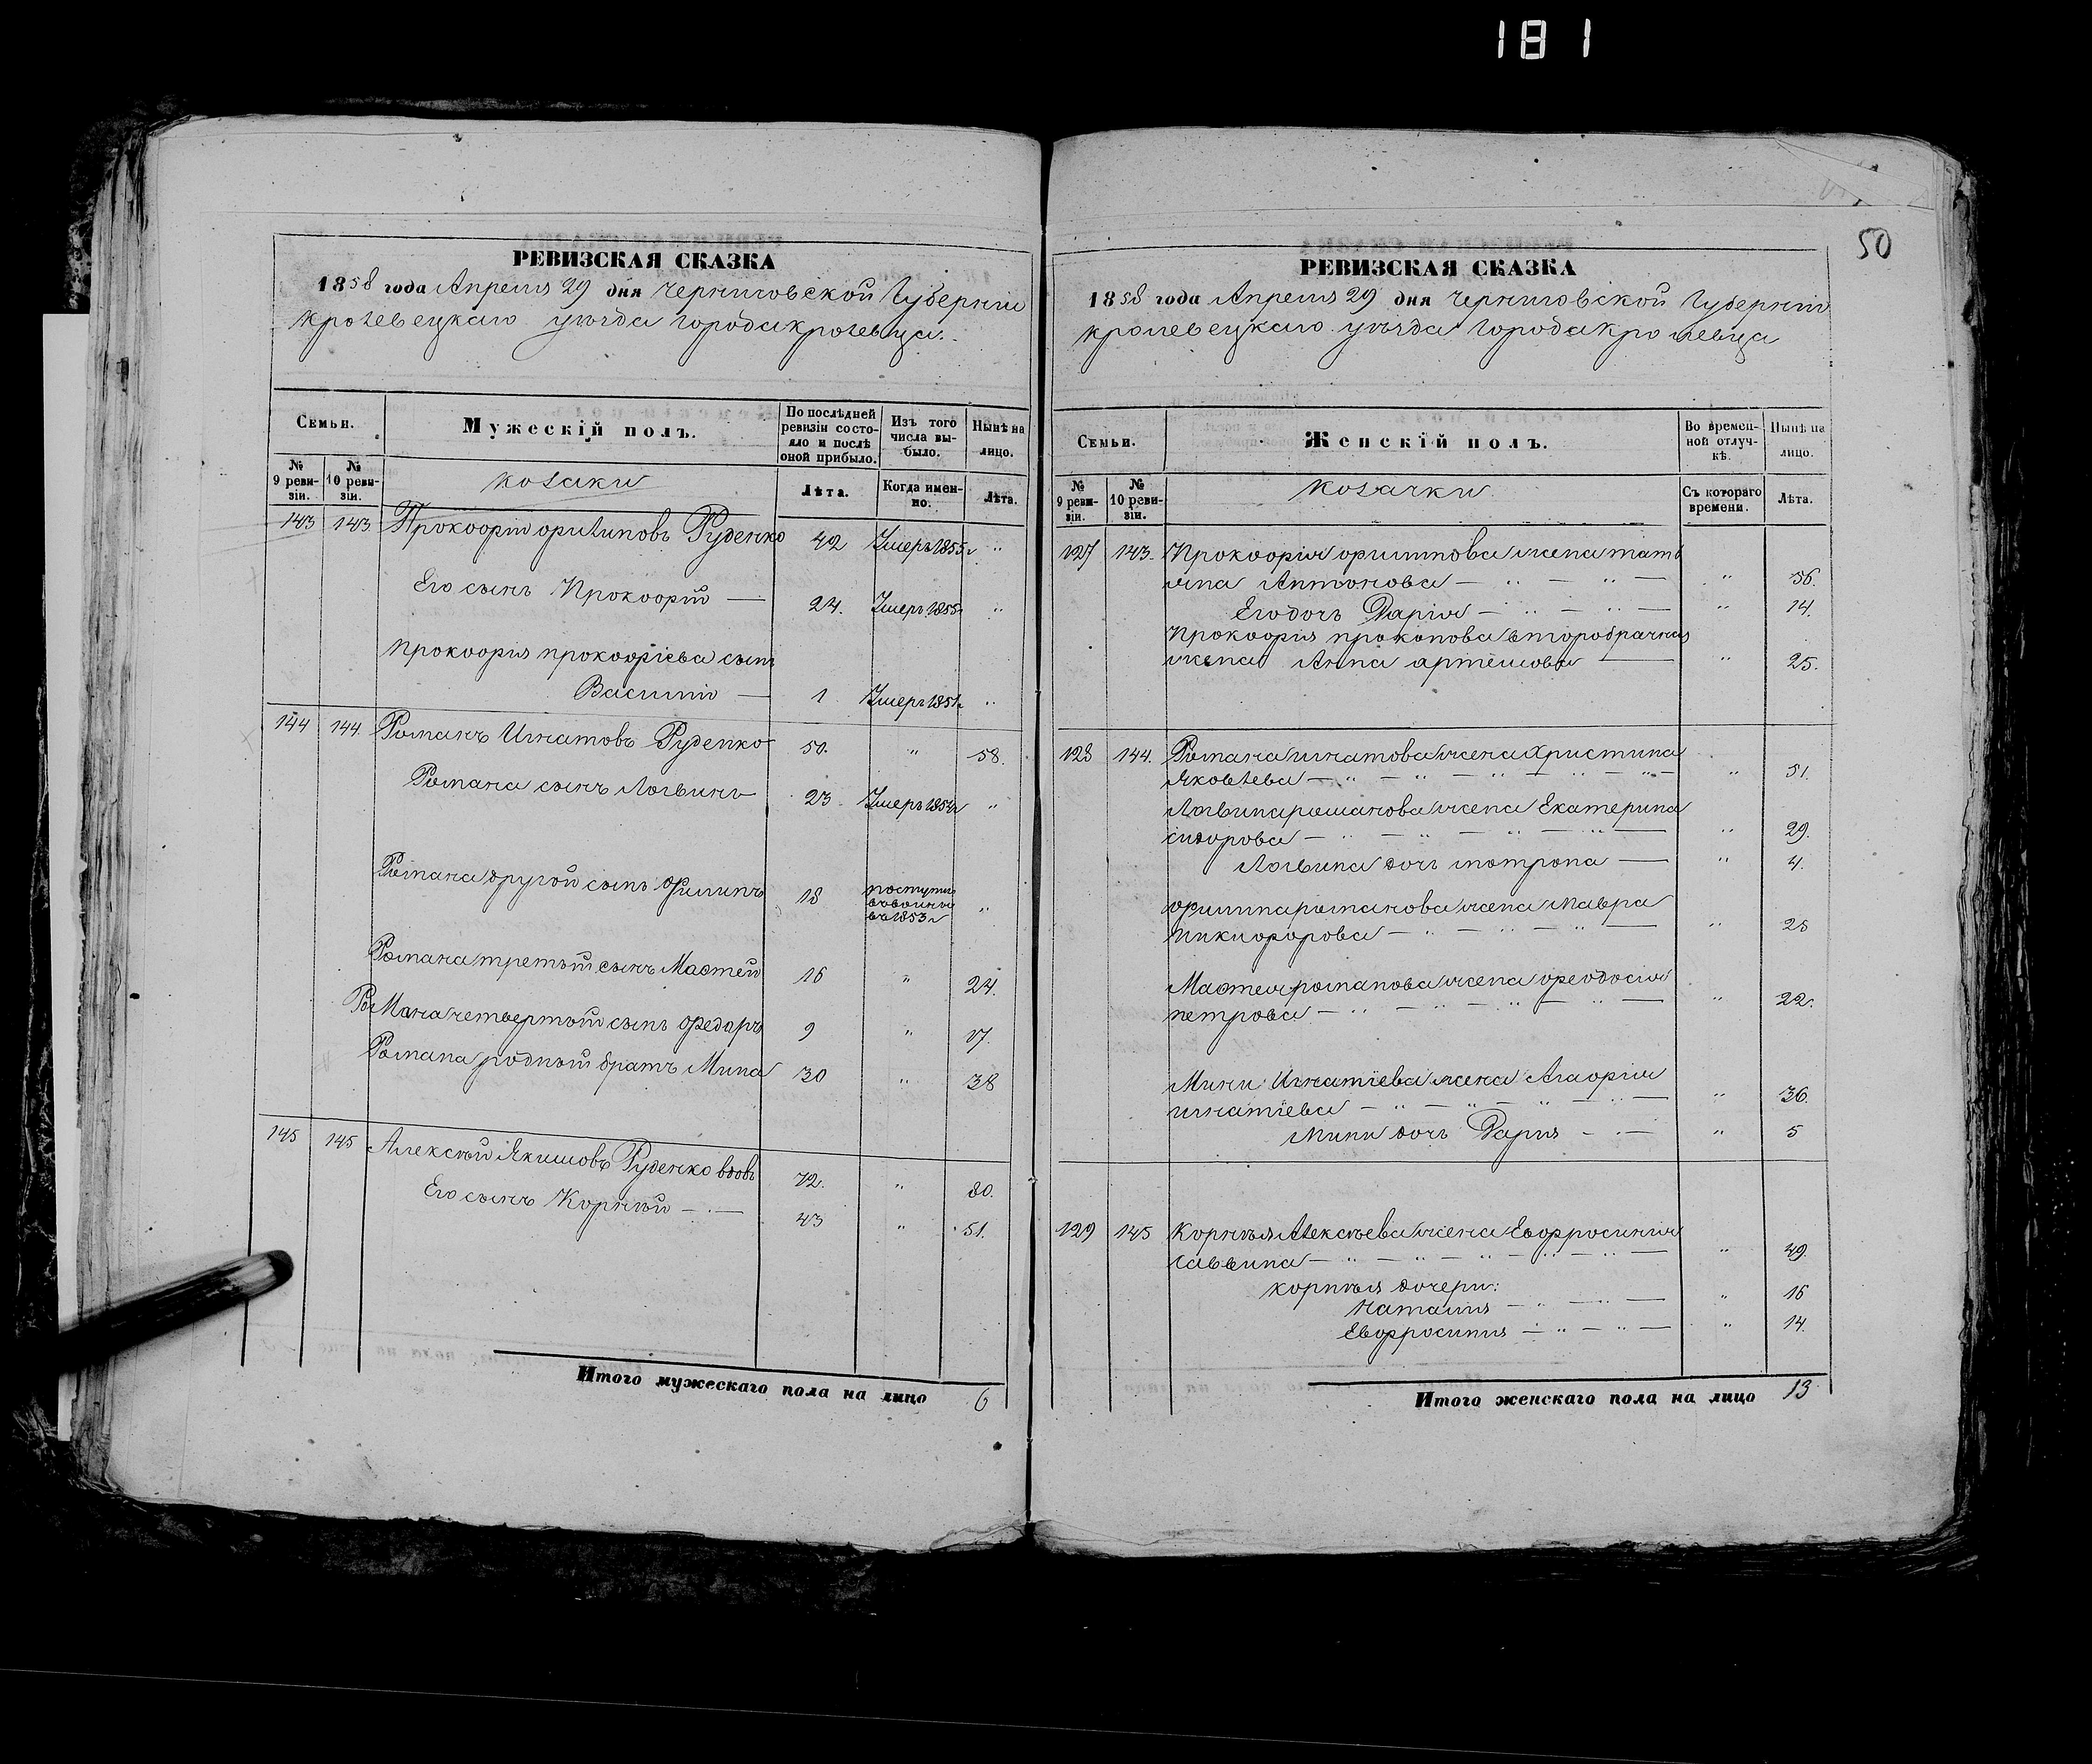 181
РЕВИЗСКАЯ СКАЗКА
1858 года Апреля 29 дня черниговской Губерніи
кролевецкаго уѣзда города кролевца.
Семьи.
Мужескій полъ.
По послѣдней ревизіи состояло и послѣ оной прибыло.
Изъ того числа выбыло.
Нынѣ на лицо.
№ 9 ревизіи.
№ 10 ревизіи.
козаки
Лѣта.
Когда именно.
Лѣта.
143 143 Прокофій филиповъ Руденко 42 Умеръ 1855г "
Его сынъ Прокофій — 24. Умеръ 1855г "
Прокофія прокофіева сынъ
Василій — 1 Умеръ 1851г "
144 144. Романъ Игнатовъ Руденко 50. " 58.
Романа сынъ Логвинъ 23 Умеръ 1854г "
Романа другой сынъ Филипъ 18 поступил в 1853г "
Романа третьій сынъ Матфей 16 " 24.
Романа четвертый сынъ Федоръ 9 " 17.
Романа родный братъ Мина 30 " 38
145 145 Алексѣй Якимовъ Руденко вдовъ 72. " 80.
Его сынъ Корнѣй — 43 " 51.
Итого мужескаго пола на лицо 6
50
РЕВИЗСКАЯ СКАЗКА
1858 года Апреля 29 дня черниговской Губерніи
кролевецкаго уѣзда города кролевца
Семьи.
Женскій полъ.
Во временной отлучкѣ.
Нынѣ на лицо.
№ 9 ревизіи.
№ 10 ревизіи.
козачки
Съ котораго времени.
Лѣта.
127 143. Прокофія филипова жена татъ
яна Антонова — " — " — " 56.
Его дочь Дарія — " — " — " 14.
Прокофия прокопова второбрачная
жена Анна артемова — " 25.
128 144. Романа игнатова жена Христина
Яковлева — " — " — " — " — " — " 51.
Логвина романова жена Екатерина
сидорова — " — " — " — " — " 29.
Логвина дочь мотрона — " 4.
филипа романова жена мавра
никифорова — " — " — " — " 25
Матфея романова жена феодосія
петрова — " — " — " — " — " 22.
Мини Игнатіева жена Агафія
игнатіева — " — " — " — " — " 36.
Мини дочь Дария — " 5
129 145 Корнѣя Алексѣева жена Евфросинія
саввина — " — " — " — " — " 49.
корнѣя дочери:
Наталия — " — " — " 16
Евфросиния — " — " — " 14.
Итого женскаго пола на лицо 13